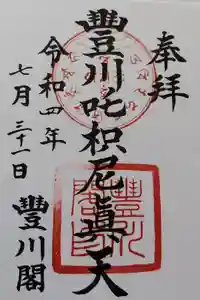 奉拝
豐川吒枳尼眞天
令和四年
七月三十一日
豐川閣